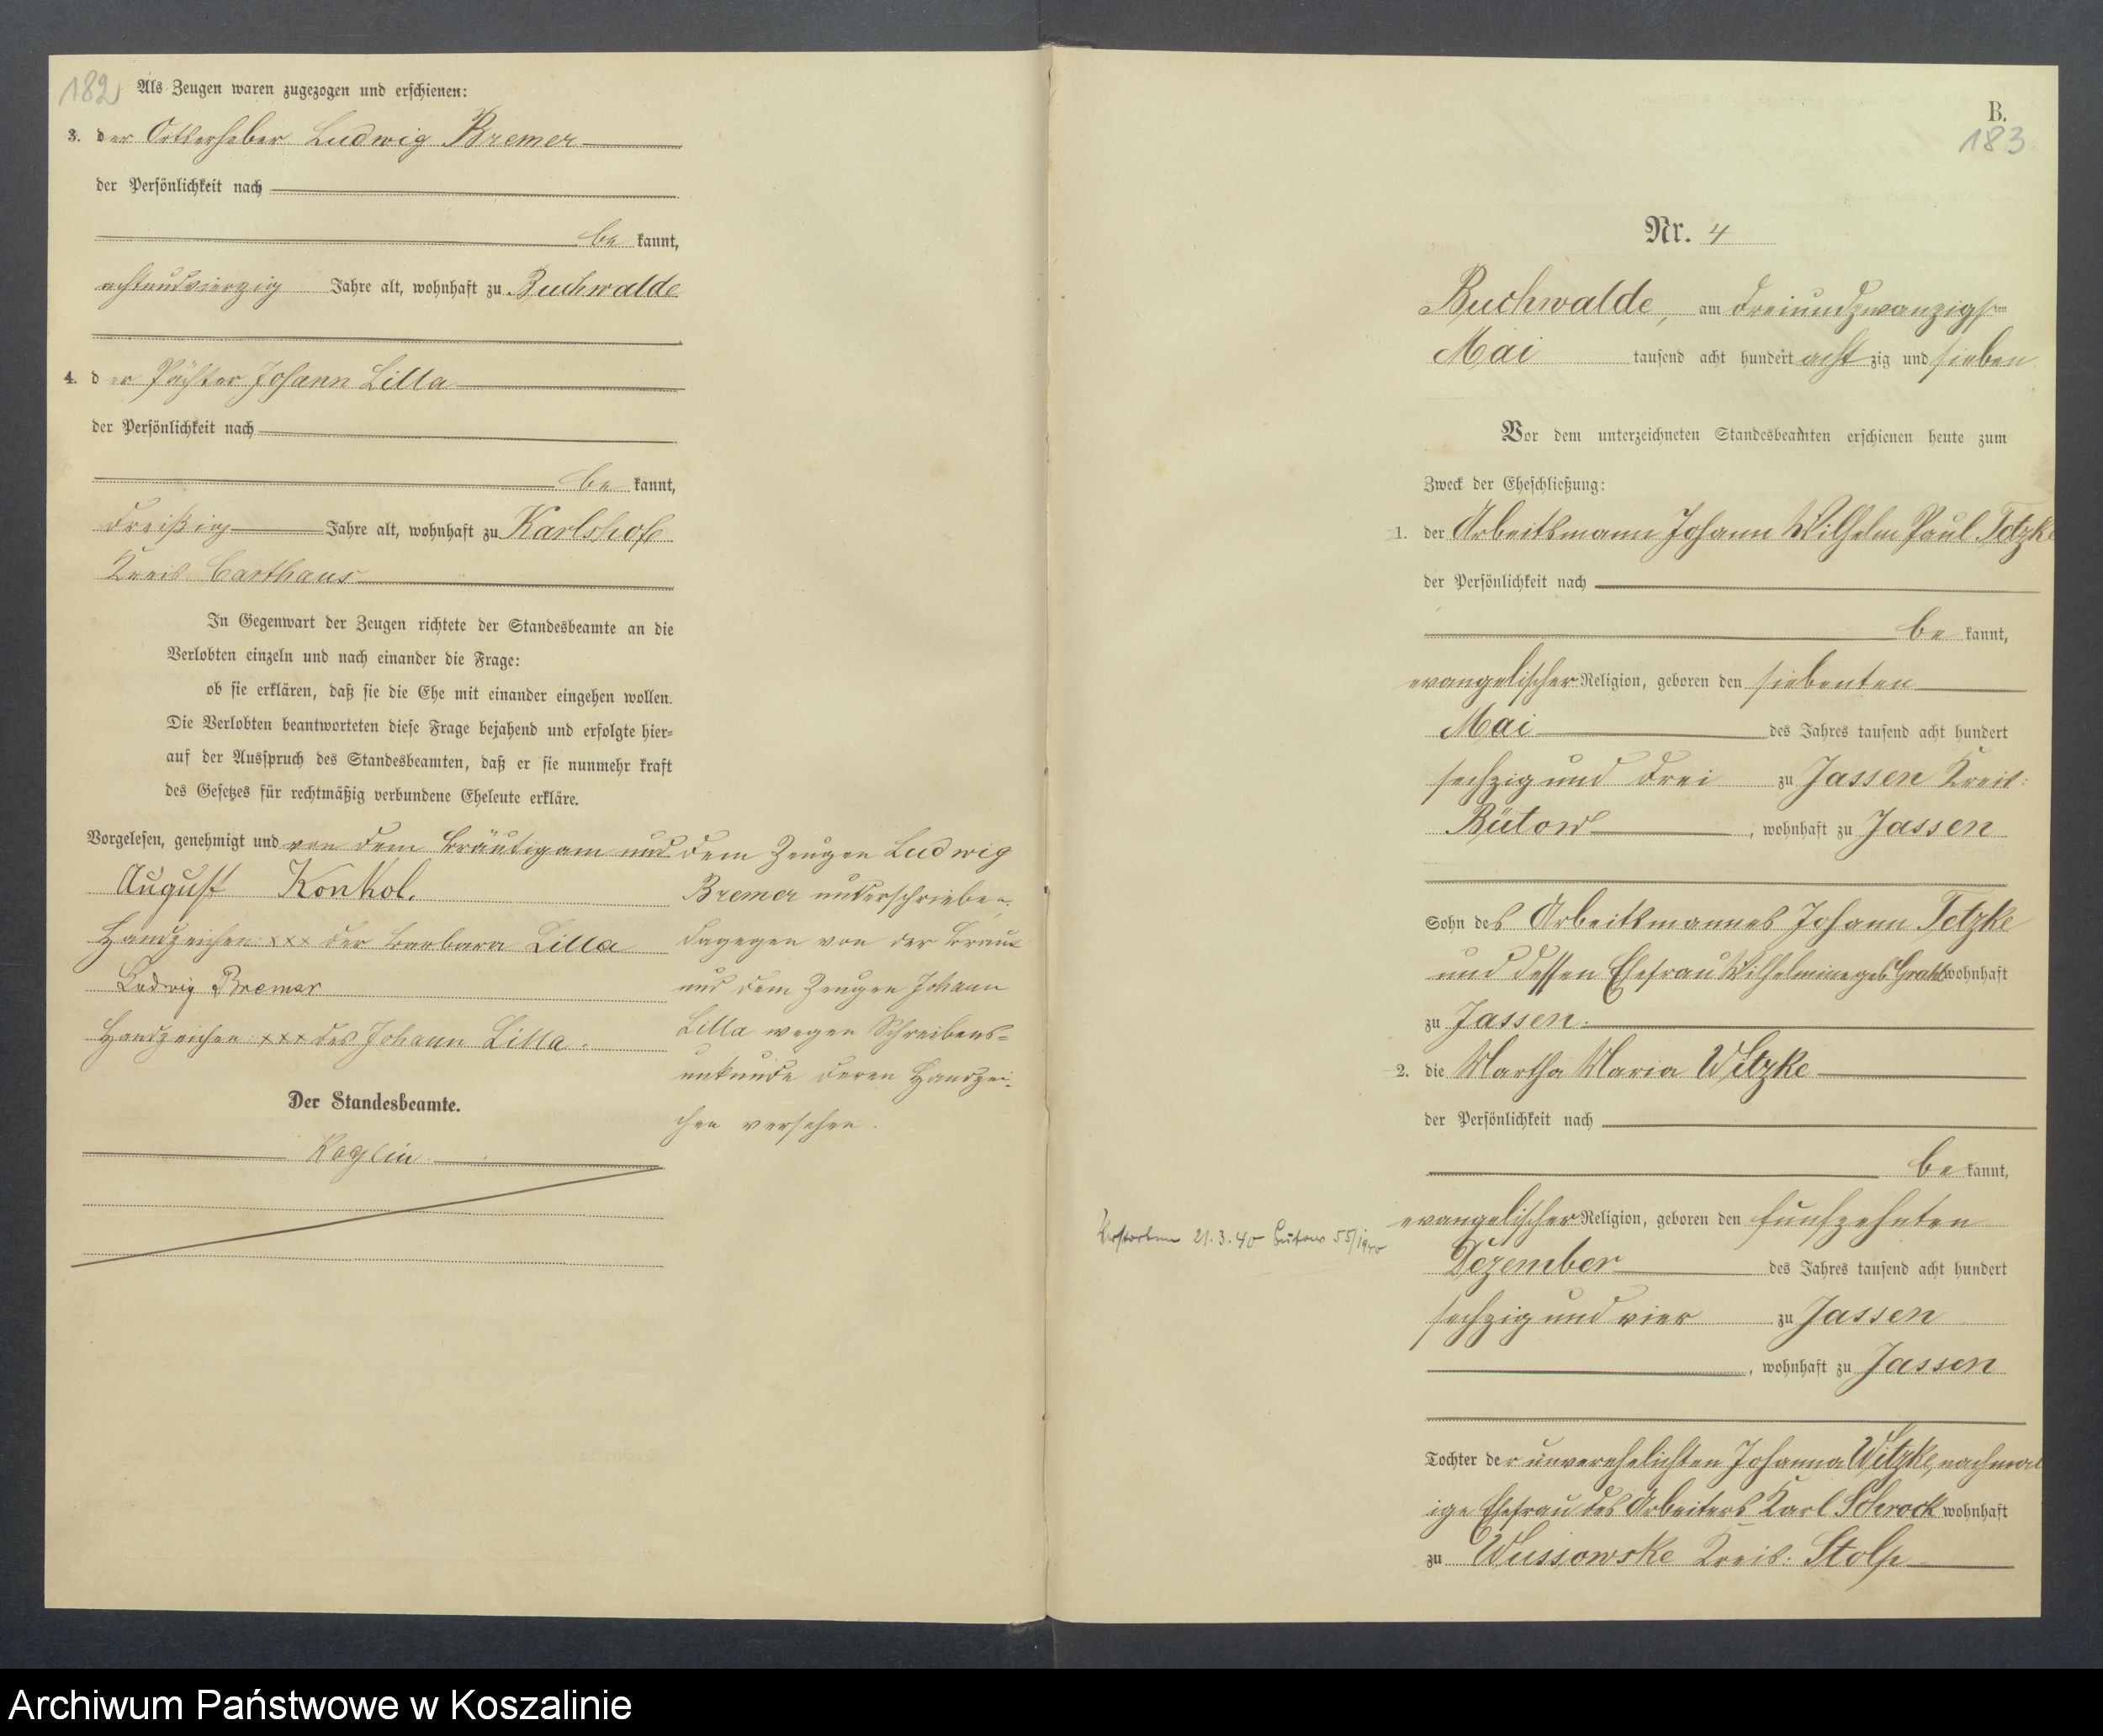 182
Als Zeugen waren zugezogen und erschienen:
3. der Ortserheber Ludwig Bremer
der Persönlichkeit nach
be kannt,
achtundvierzig Jahre alt, wohnhaft zu Buchwalde
4. der Pächter Johann Lilla
der Persönlichkeit nach
be kannt,
dreißig Jahre alt, wohnhaft zu Karlshof
Kreis Carthaus
In Gegenwart der Zeugen richtete der Standesbeamte an die
Verlobten einzeln und nach einander die Frage:
ob sie erklären, daß sie die Ehe mit einander eingehen wollen.
Die Verlobten beantworteten diese Frage bejahend und erfolgte hier=
auf der Ausspruch des Standesbeamten, daß er sie nunmehr kraft
des Gesetzes für rechtmäßig verbundene Eheleute erkläre.
Vorgelesen, genehmigt und von dem Bräutigam und dem Zeugen Ludwig
Bremer unterschrieben,
dagegen von der Braut
und dem Zeugen Johann
Lilla wegen Schreibens=
unkunde deren Handzei=
chen versehen.
August Konkol.
Handzeichen xxx der Barbara Lilla
Ludwig Bremer
Handzeichen xxx des Johann Lilla.
Der Standesbeamte.
B.
183
Nr. 4
Buchwalde, am dreiundzwanzigsten
Mai tausend acht hundert achtzig und sieben
Vor dem unterzeichneten Standesbeamten erschienen heute zum
Zweck der Eheschließung:
1. der Arbeitsmann Johann Wilhelm Paul Tetzke
der Persönlichkeit nach
be kannt,
evangelischer Religion, geboren den siebenten
Mai des Jahres tausend acht hundert
sechzig und drei zu Jassen Kreis:
Bütow, wohnhaft zu Jassen
Sohn des Arbeitsmannes Johann Tetzke
und dessen Ehefrau Wilhelmine geb. wohnhaft
zu Jassen.
2. die Martha Maria Witzke
der Persönlichkeit nach
be kannt,
Verstorben 21.3.40 Bütow 55/1940
evangelischer Religion, geboren den fünfzehnten
Dezember des Jahres tausend acht hundert
sechzig und vier zu Jassen
, wohnhaft zu Jassen
Tochter der unverehelichten Johanna Witzke, nachmal
ige Ehefrau des Arbeiters Karl Schrock wohnhaft
zu Wussowske Kreis. Stolp
Archiwum Państwowe w Koszalinie